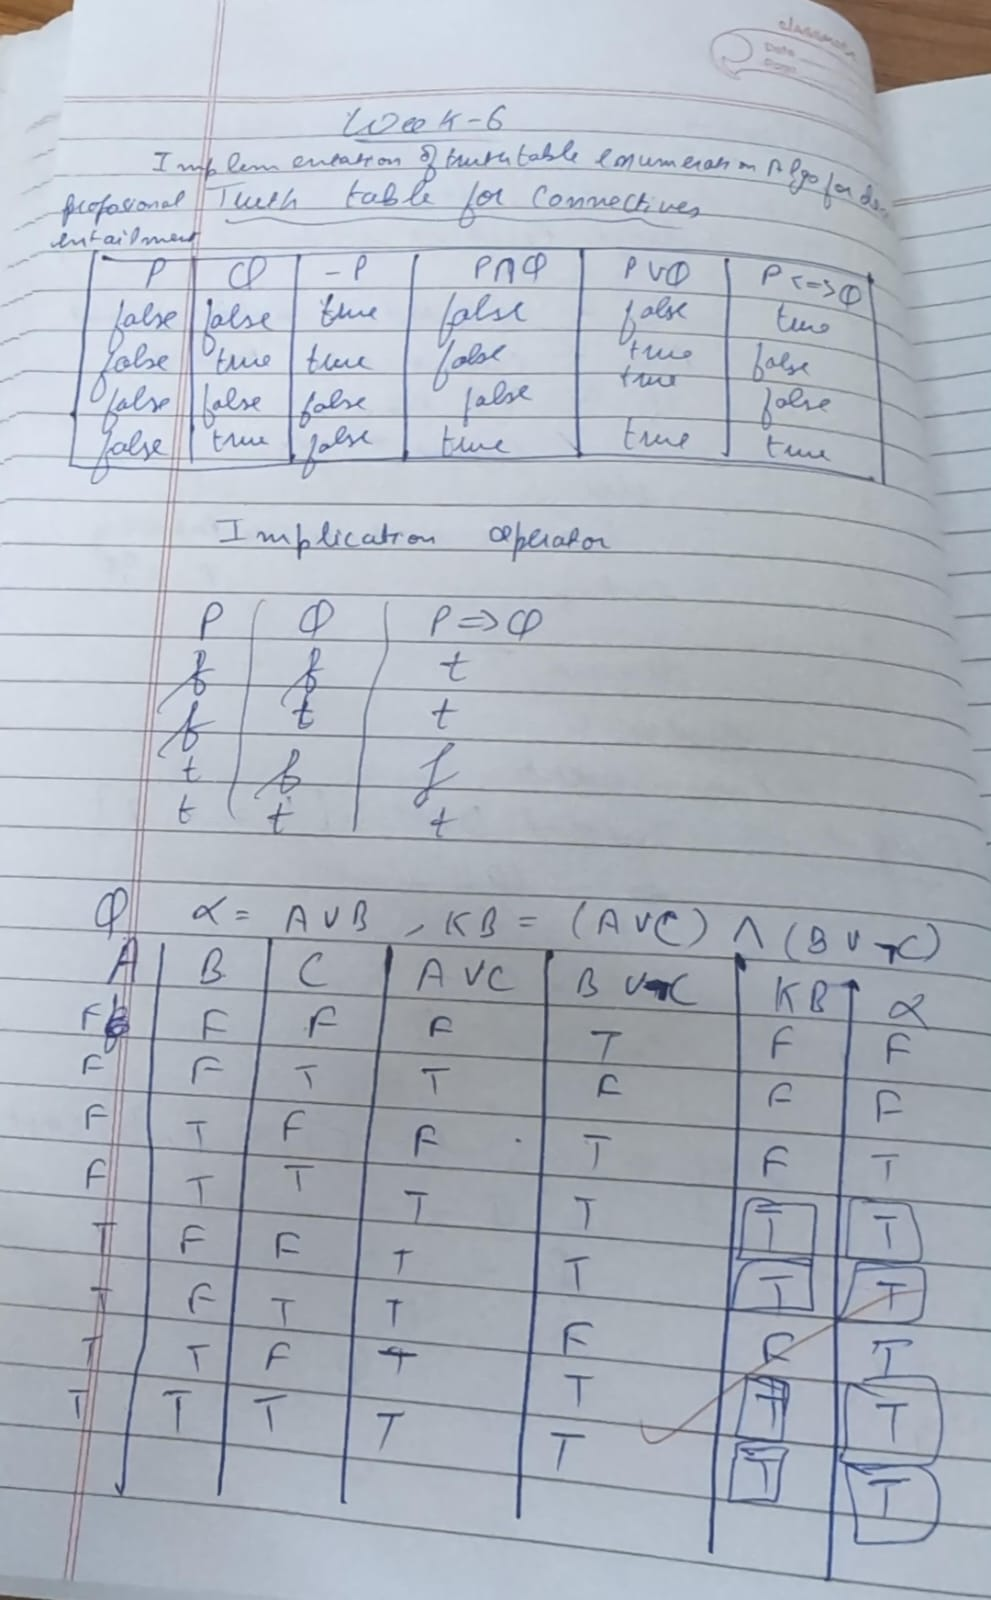 classmate
Date
Page
Week-6
Implementation of truth table enumeration Algo for
propasional Truth table for Connectives
entailment
P Q -P P∩Q P∨Q P<=>Q
false false true false false true
false true true false true false
false false false false true false
false true false true true true
Implication operator
P Q P=>Q
f f t
f t t
t f f
t t t
Q α = A∨B , KB = (A∨C) ∧ (B∨¬C)
A B C A∨C B∨¬C KB α
F F F F T F F
F F T T F F F
F T F F T F T
F T T T T T T
T F F T T T T
T F T T F F T
T T F T T T T
T T T T T T T